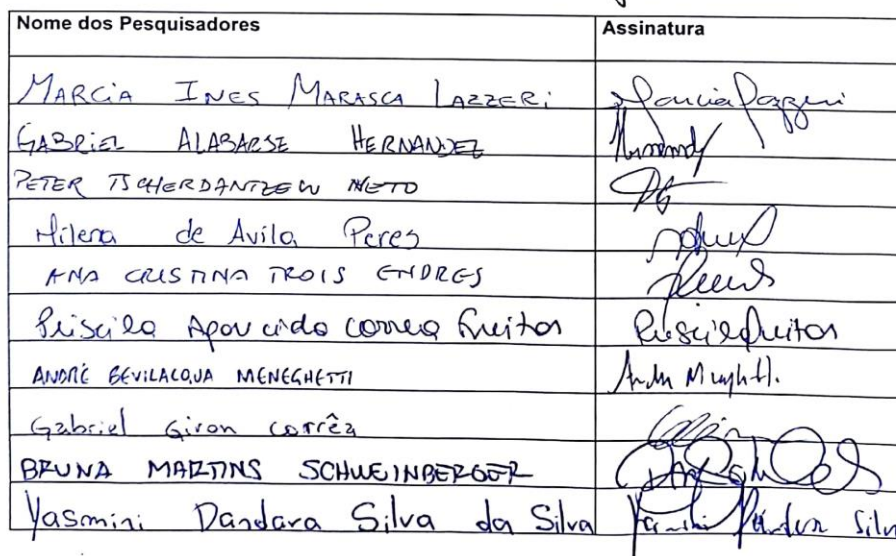 Nome dos Pesquisadores Assinatura
MARCIA INES MARASCA LAZZERI Marcia Lazzeri
GABRIEL ALABARSE HERNANDEZ
PETER TSCHERDANTZEW NETO
Milena de Avila Peres
ANA CRISTINA TROIS ENDRES
Priscila Aparecida Correa Freitas Priscila Freitas
ANDRÉ BEVILACQUA MENEGHETTI
Gabriel Giron Corrêa
BRUNA MARTINS SCHWEINBERGER
Yasmini Dandara Silva da Silva Yasmini Dandara Silva